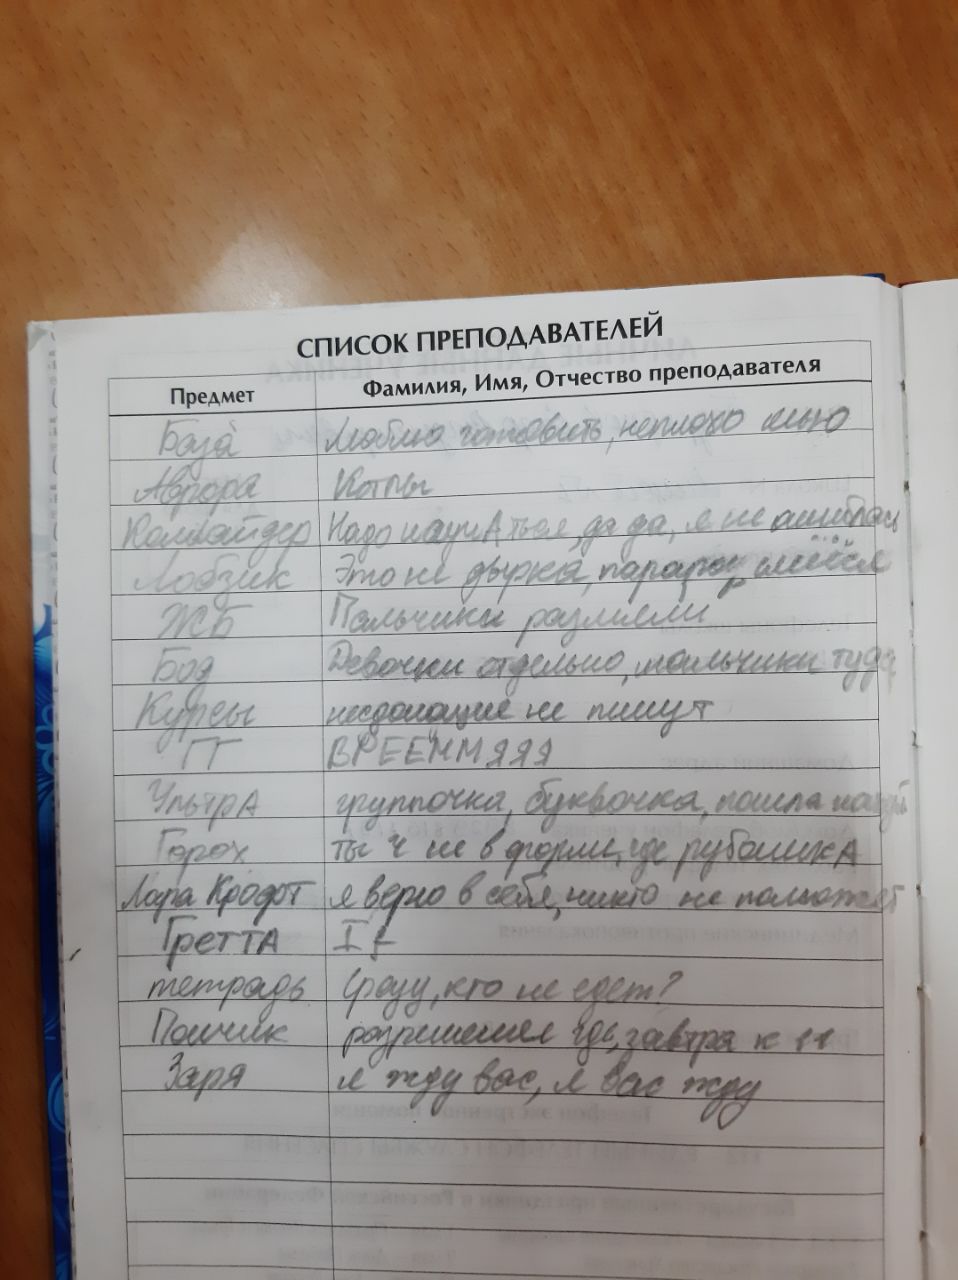 СПИСОК ПРЕПОДАВАТЕЛЕЙ
Предмет Фамилия, Имя, Отчество преподавателя
База Люблю готовить, неплохо шью
Аврора Коты
Комкайдер Надо научАться, да да, я не ошиблась
Лобзик Это не дырка, парарам смеёся
ЖБ Пальчики размяли
Бод Девочки отдельно, мальчики туда
Курсы несдающие не пишут
ГГ ВРЕЕММЯЯЯ
УльтрА группочка, буквочка, пошла
Горох ты ч не в форме, где рубашкА
Лара Крофт я верю в себя, никто не поможет
ГреттА If
тетрадь Сразу, кто не едет?
Пончик разрешения где, завтра к 11
Заря я жду вас, я вас жду